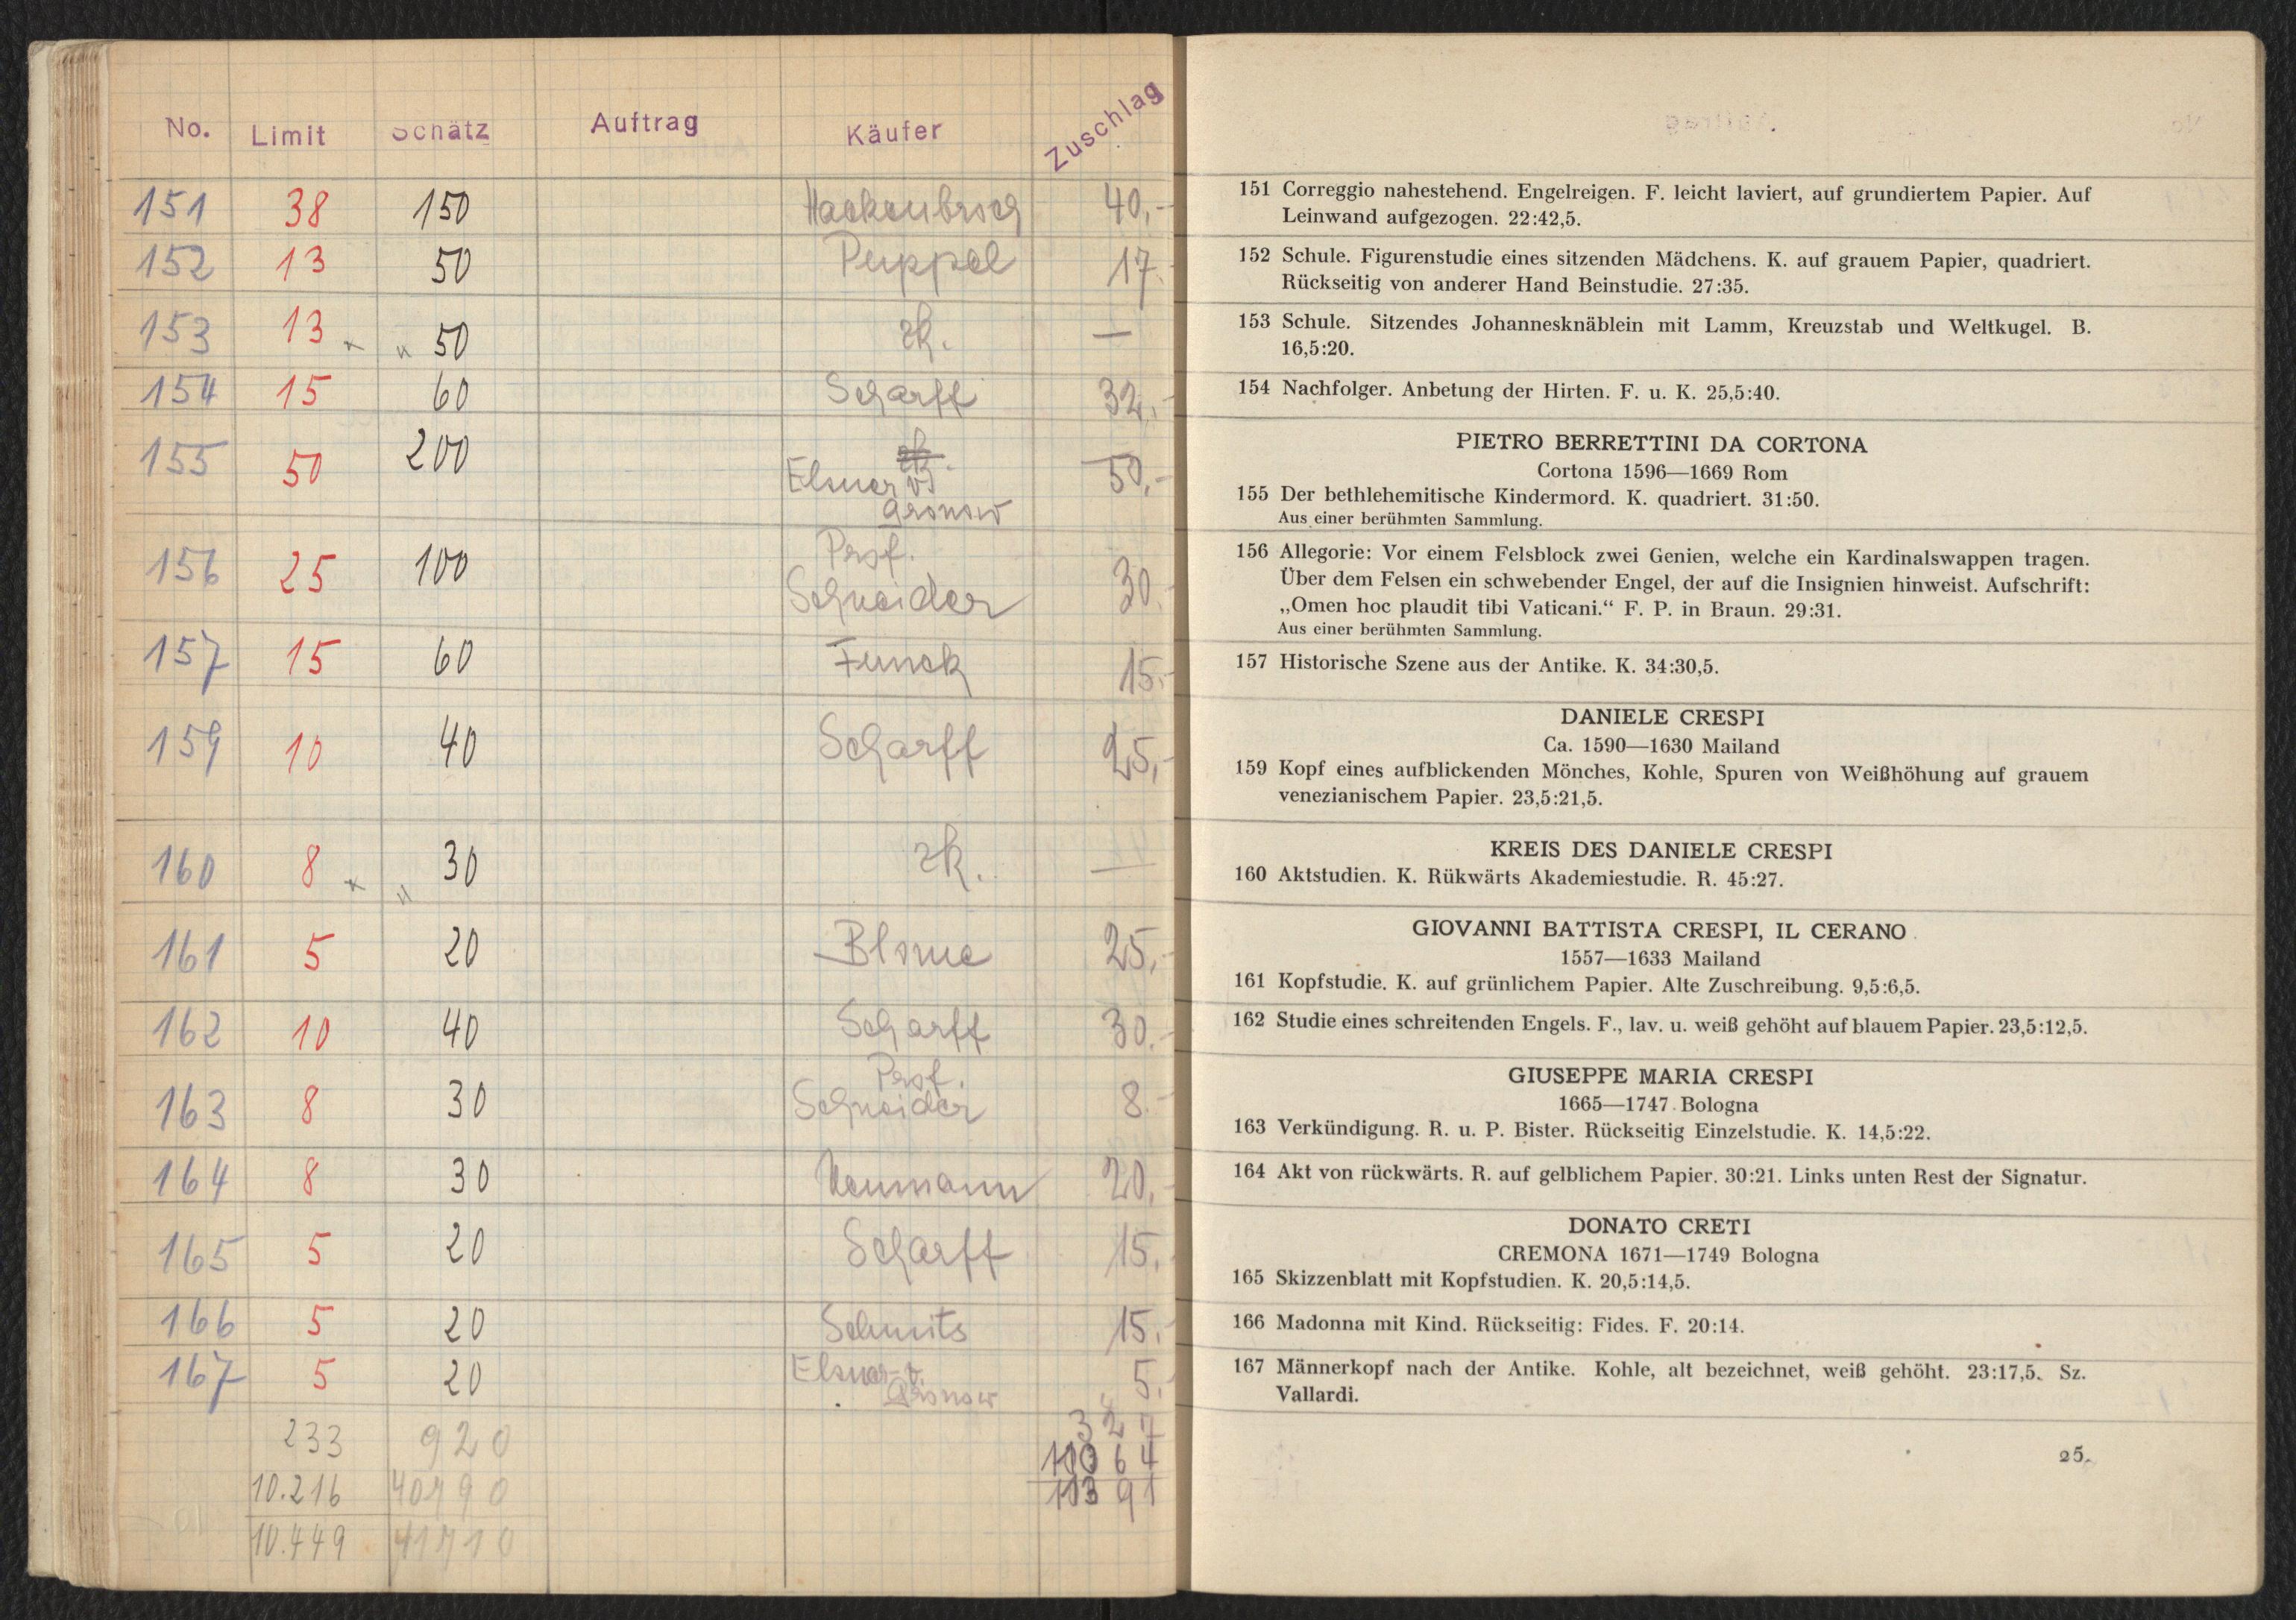 No. Limit Schätz Auftrag Käufer Zuschlag
151 38 150 Hackenbroch 40,-
152 13 50 Puppel 17.-
153 13 x x 50 zk. —
154 15 60 Scharff 32,-
155 50 200 zk.
Elsner v. 50,-
Gronow
156 25 100 Prof.
Schneider 30.-
157 15 60 Funck 15.-
159 10 40 Scharff 25,-
160 8 x x 30 zk. —
161 5 20 Blume 25,-
162 10 40 Scharff 30.-
Prof.
163 8 30 Schneider 8.-
164 8 30 Neumann 20,-
165 5 20 Scharff 15.
166 5 20 Schmits 15.
167 5 20 Elsner v. 5.
Gronow
233 920 327
10.216 40790 10064
10.449 41710 10391
151 Correggio nahestehend. Engelreigen. F. leicht laviert, auf grundiertem Papier. Auf
Leinwand aufgezogen. 22:42,5.
152 Schule. Figurenstudie eines sitzenden Mädchens. K. auf grauem Papier, quadriert.
Rückseitig von anderer Hand Beinstudie. 27:35.
153 Schule. Sitzendes Johannesknäblein mit Lamm, Kreuzstab und Weltkugel. B.
16,5:20.
154 Nachfolger. Anbetung der Hirten. F. u. K. 25,5:40.
PIETRO BERRETTINI DA CORTONA
Cortona 1596—1669 Rom
155 Der bethlehemitische Kindermord. K. quadriert. 31:50.
Aus einer berühmten Sammlung.
156 Allegorie: Vor einem Felsblock zwei Genien, welche ein Kardinalswappen tragen.
Über dem Felsen ein schwebender Engel, der auf die Insignien hinweist. Aufschrift:
„Omen hoc plaudit tibi Vaticani.“ F. P. in Braun. 29:31.
Aus einer berühmten Sammlung.
157 Historische Szene aus der Antike. K. 34:30,5.
DANIELE CRESPI
Ca. 1590—1630 Mailand
159 Kopf eines aufblickenden Mönches, Kohle, Spuren von Weißhöhung auf grauem
venezianischem Papier. 23,5:21,5.
KREIS DES DANIELE CRESPI
160 Aktstudien. K. Rükwärts Akademiestudie. R. 45:27.
GIOVANNI BATTISTA CRESPI, IL CERANO
1557—1633 Mailand
161 Kopfstudie. K. auf grünlichem Papier. Alte Zuschreibung. 9,5:6,5.
162 Studie eines schreitenden Engels. F., lav. u. weiß gehöht auf blauem Papier. 23,5:12,5.
GIUSEPPE MARIA CRESPI
1665—1747 Bologna
163 Verkündigung. R. u. P. Bister. Rückseitig Einzelstudie. K. 14,5:22.
164 Akt von rückwärts. R. auf gelblichem Papier. 30:21. Links unten Rest der Signatur.
DONATO CRETI
CREMONA 1671—1749 Bologna
165 Skizzenblatt mit Kopfstudien. K. 20,5:14,5.
166 Madonna mit Kind. Rückseitig: Fides. F. 20:14.
167 Männerkopf nach der Antike. Kohle, alt bezeichnet, weiß gehöht. 23:17,5. Sz.
Vallardi.
25.